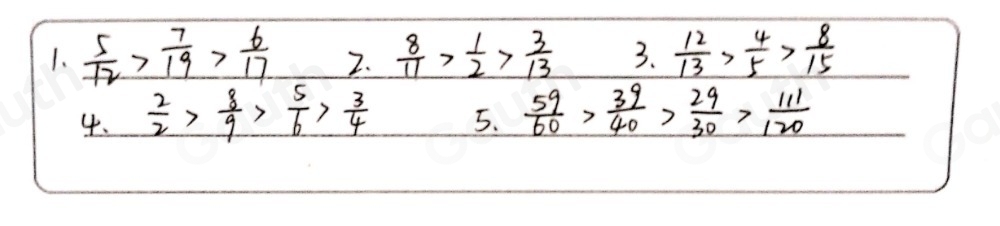 1. 5/12 > 7/19 > 6/17 2. 8/11 > 1/2 > 3/13 3. 12/13 > 4/5 > 8/15
4. 2/2 > 8/9 > 5/6 > 3/4 5. 59/60 > 39/40 > 29/30 > 111/120